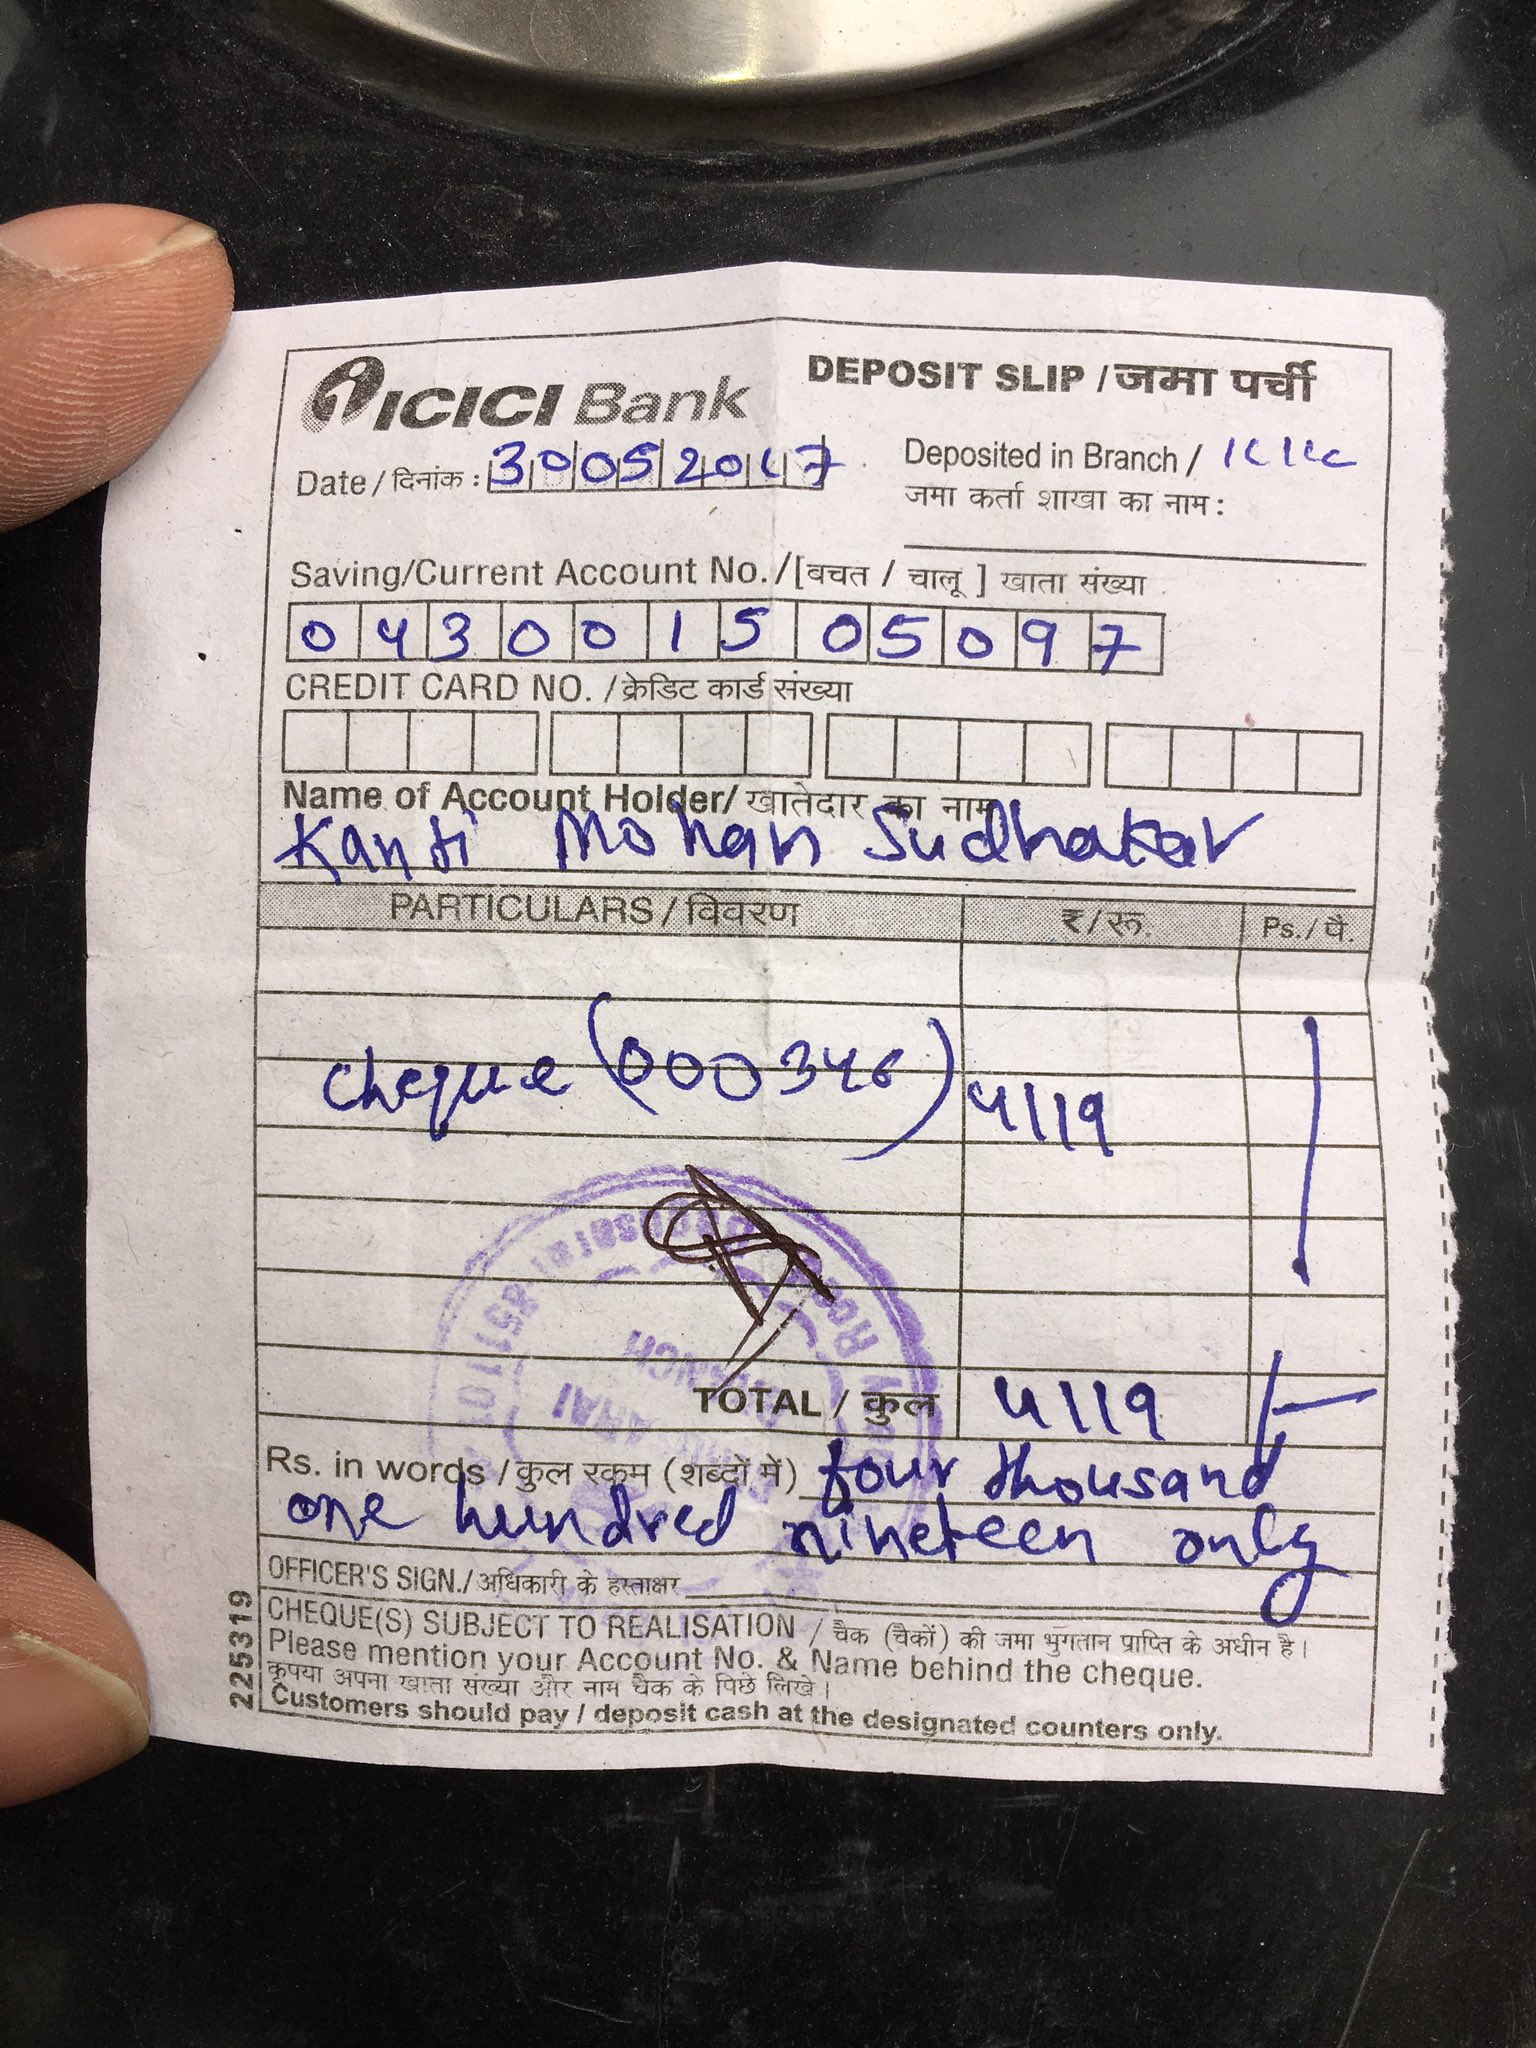 ICICI Bank DEPOSIT SLIP / जमा पर्ची
Date / दिनांक : 30052017 Deposited in Branch /
जमा कर्ता शाखा का नाम :
Saving/Current Account No. / [बचत / चालू ] खाता संख्या
043001505097
CREDIT CARD NO. / क्रेडिट कार्ड संख्या
Name of Account Holder/ खातेदार का नाम
Kanti Mohan Sudhakar
PARTICULARS / विवरण ₹ / रू. Ps. / पै.
cheque (000346) 4119
TOTAL / कुल 4119
Rs. in words / कुल रकम (शब्दों में) four thousand
one hundred nineteen only
OFFICER'S SIGN./ अधिकारी के हस्ताक्षर
CHEQUE(S) SUBJECT TO REALISATION / चैक (चैकों) की जमा भुगतान प्राप्ति के अधीन है।
Please mention your Account No. & Name behind the cheque.
कृपया अपना खाता संख्या और नाम चैक के पिछे लिखे।
Customers should pay / deposit cash at the designated counters only.
225319
BRANCH